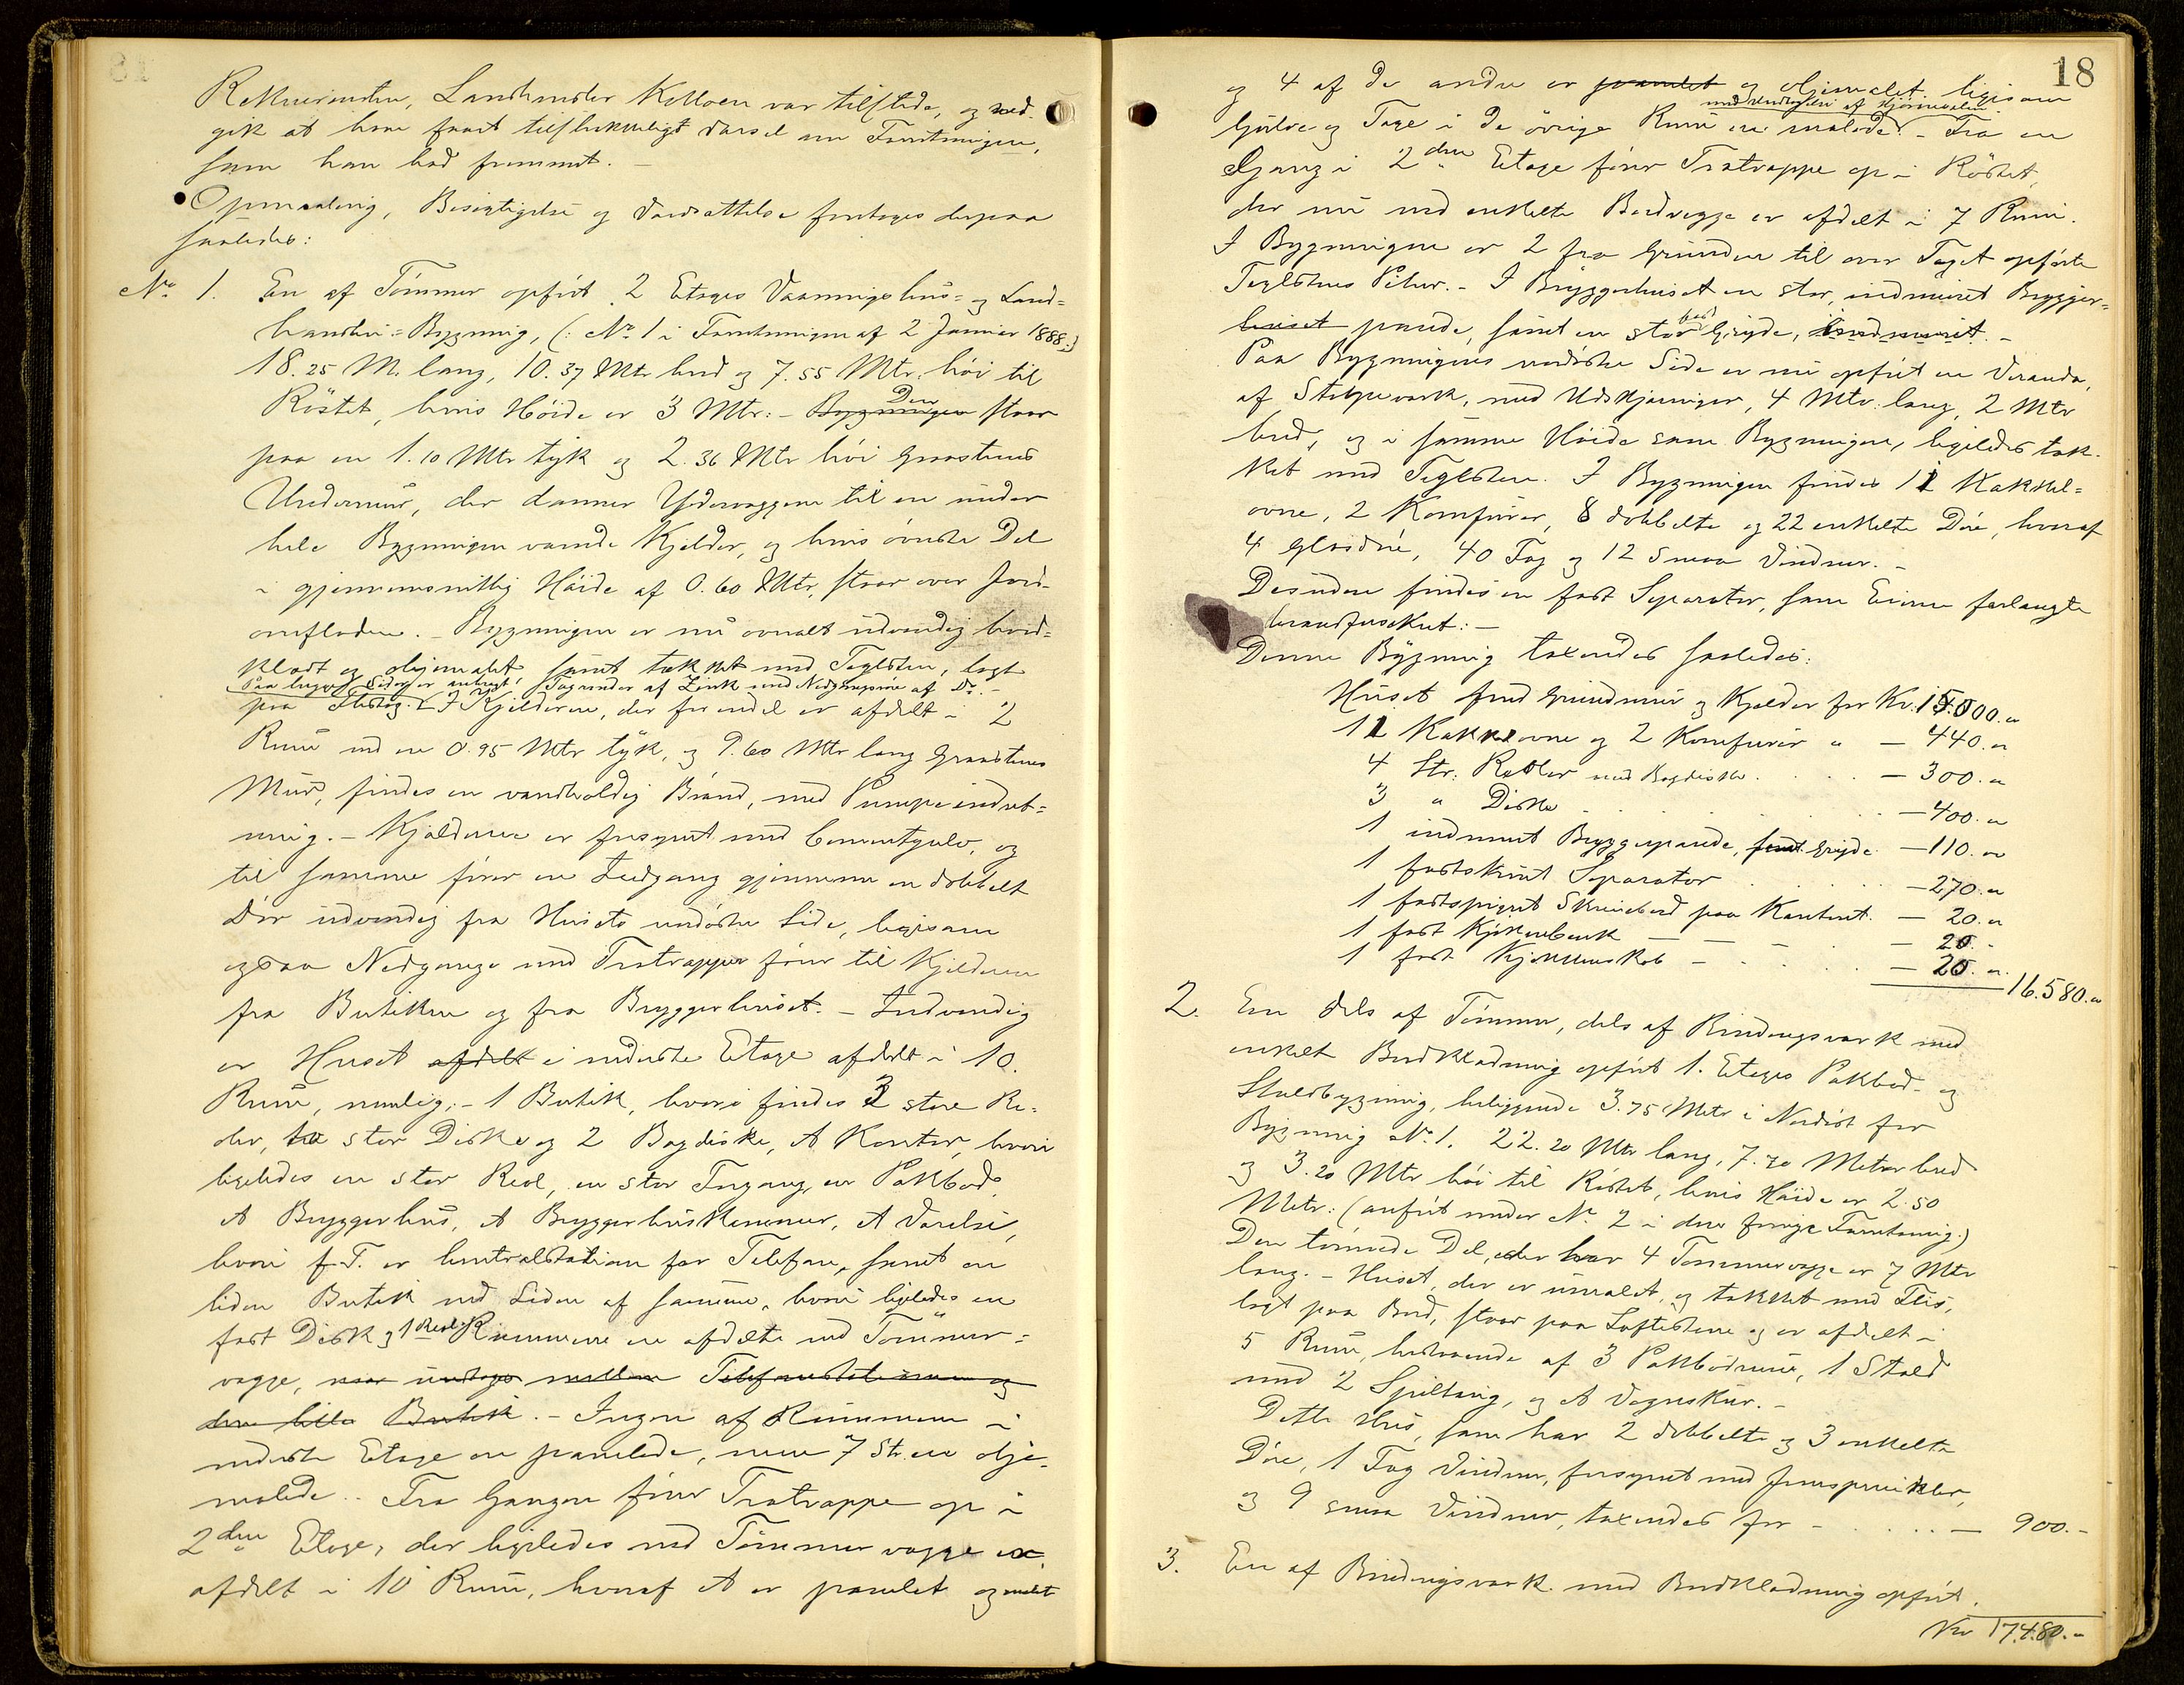 Rekvirenten, Landhandler Killoen var tilstede, og ved-
gik at have faaet tilstrækkeligt Varsel om Forretningen,
som han bad fremmet. -
Opmaaling, Besigtigelse og Værdsættelse foretoges derpaa
saaledes:
No 1. En af Tømmer opført 2 Etages Vaaningshus- og Land-
handleri-Bygning, (: No 1 i Forretningen af 2 Januar 1888:)
18.25 M. lang, 10.37 Mtr bred og 7.55 Mtr: høi til
Röstet, hvis Høide er 3 Mtr: - Bygningen Den staar
paa en 1.10 Mtr tyk og 2.36 Mtr høi Graastens
Undermur, der danner Ydervæggene til en under
hele Bygningen værende Kjelder, og hvis øverste Del
i gjennemsnitlig Høide af 0.60 Mtr, staar over Jord-
overfladen. - Bygningen er nu overalt udvendig bord-
klædt og oljemalet samt tækket med Teglsten, lagt
Paa begge Sider er anbragt Tagrender af Zink med Nedgangsrør af Do. -
paa Flistag. I Kjelderen, der forendel er afdelt i 2
Rum ved en 0.95 Mtr tyk, og 9.60 Mtr lang Graastens
Mur, findes en vandholdig Brønd, med Pumpeindret-
ning. - Kjelderen er forsynet med Cementgulv, og
til samme fører en Indgang gjennem en dobbelt
Dör udvendig fra Husets nordøstre Side, ligesom
ogsaa Nedgange med Trætrapper fører til Kjelderen
fra Butiken og fra Bryggerhuset. - Indvendig
er Huset afdelt i nederste Etage afdelt i 10.
Rum, nemlig: - 1 Butik, hvori findes 3 store Re-
oler, to stor Diske og 2 Bagdiske, et Kontor, hvori
ligeledes en stor Reol, en stor Ingang, en Pakbod,
et Bryggerhus, et Bryggerhuskammer, et Værelse,
hvori f. T. er Centralstation for Telefon, samt en
liden Butik ved Siden af samme, hvori ligeledes en
fast Disk og 1 Reol. Rummene er afdelte ved Tømmer-
vægge, naar undtages mellem Telefonstationen og
den lille Butik. - Ingen af Rummene i
nederste Etage er panelede, men 7 St. er olje-
malede. - Fra Gangen fører Trætrappe op i
2den Etage, der ligeledes ved Tømmervægge er
afdelt i 10 Rum, hvoraf et er panelet og malt
18
og 4 af de andre er panelet og oljemalet, ligesom
med Undtagelse af Hjørnesalen
Gulve og Tage i de øvrige Rum er malede. - Fra en
Gang i 2den Etage fører Trætrappe op i Röstet,
der nu ved enkelte Bordvegge er afdelt i 7 Rum.
I Bygningen er 2 fra Grunden til over Taget opførte
Teglstens Piber. - I Bryggerhuset en stor, indmuret Brygger-
huset pande, samt en stor fast Gryde, indmuret. -
Paa Bygningens nordøstre Side er nu opført en Veranda,
af Stolpeværk, med Udskjæringer, 4 Mtr: lang, 2 Mtr
bred, og i samme Høide som Bygningen, ligeledes tæk-
ket med Teglsten. I Bygningen findes 11 Kakkel-
ovne, 2 Komfurer, 8 dobbelte og 22 enkelte Döre, hvoraf
4 Glasdøre, 40 Fag og 12 Smaa Vinduer. -
Desuden findes en fast Separator, som Eieren forlangte
brandforsikret: -
Denne Bygning taxeredes saaledes:
Huset med Grundmur og Kjelder for Kr. 15.000.„
11 Kakkelovne og 2 Komfurer „ - 440.„
4 Str: Reoler med Bagdiske . . . - 300.„
3 „ Diske . . . . - 400.„
1 indmuret Bryggerpande, samt Gryde - 110.„
1 fastskruet Separator . . . - 270.„
1 fastspigret Skrivebord paa Kontoret. - 20.„
1 fast Kjøkkenbænk - - - - 20.-
1 fast Kjøkkenskab - . . . - 20.„
16.580.„
2. En dels af Tømmer, dels af Bindingsværk med
enkelt Bordklædning opført 1. Etages Pakbod- og
Staldbygning, beliggende 3.75 Mtr i Nordøst for
Bygning No 1. 22.20 Mtr lang, 7.70 Meter bred
og 3.20 Mtr høi til Röstet, hvis Høide er 2.50
Metr: (anført under No 2 i den forrige Forretning.)
Den tømrede Del, der har 4 Tømmervægge er 7 Mtr
lang. - Huset, der er umalet, og tækket med Flis,
lagt paa Bord, staar paa Løftestene og er afdelt i
5 Rum, bestaaende af 3 Pakbodrum, 1 Stald
med 2 Spiltaug, og et Vognskur. -
Dette Hus, som har 2 dobbelte og 3 enkelte
Döre, 1 Fag Vinduer, forsynet med Jernsprinkler,
og 9 smaa Vinduer, taxeredes for - . . . - 900.-
3. En af Bindingsværk med Bordklædning opført.
Kr 17.480.„